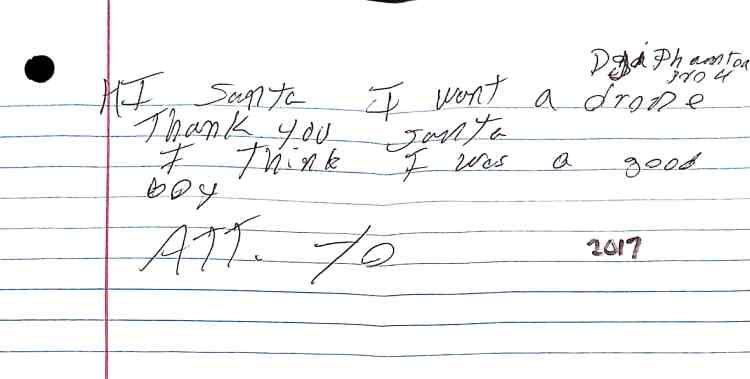 Dji Phantom
pro 4
HI Santa I want a drone
Thank you Santa
I Think I was a good
boy
ATT. YO
2017